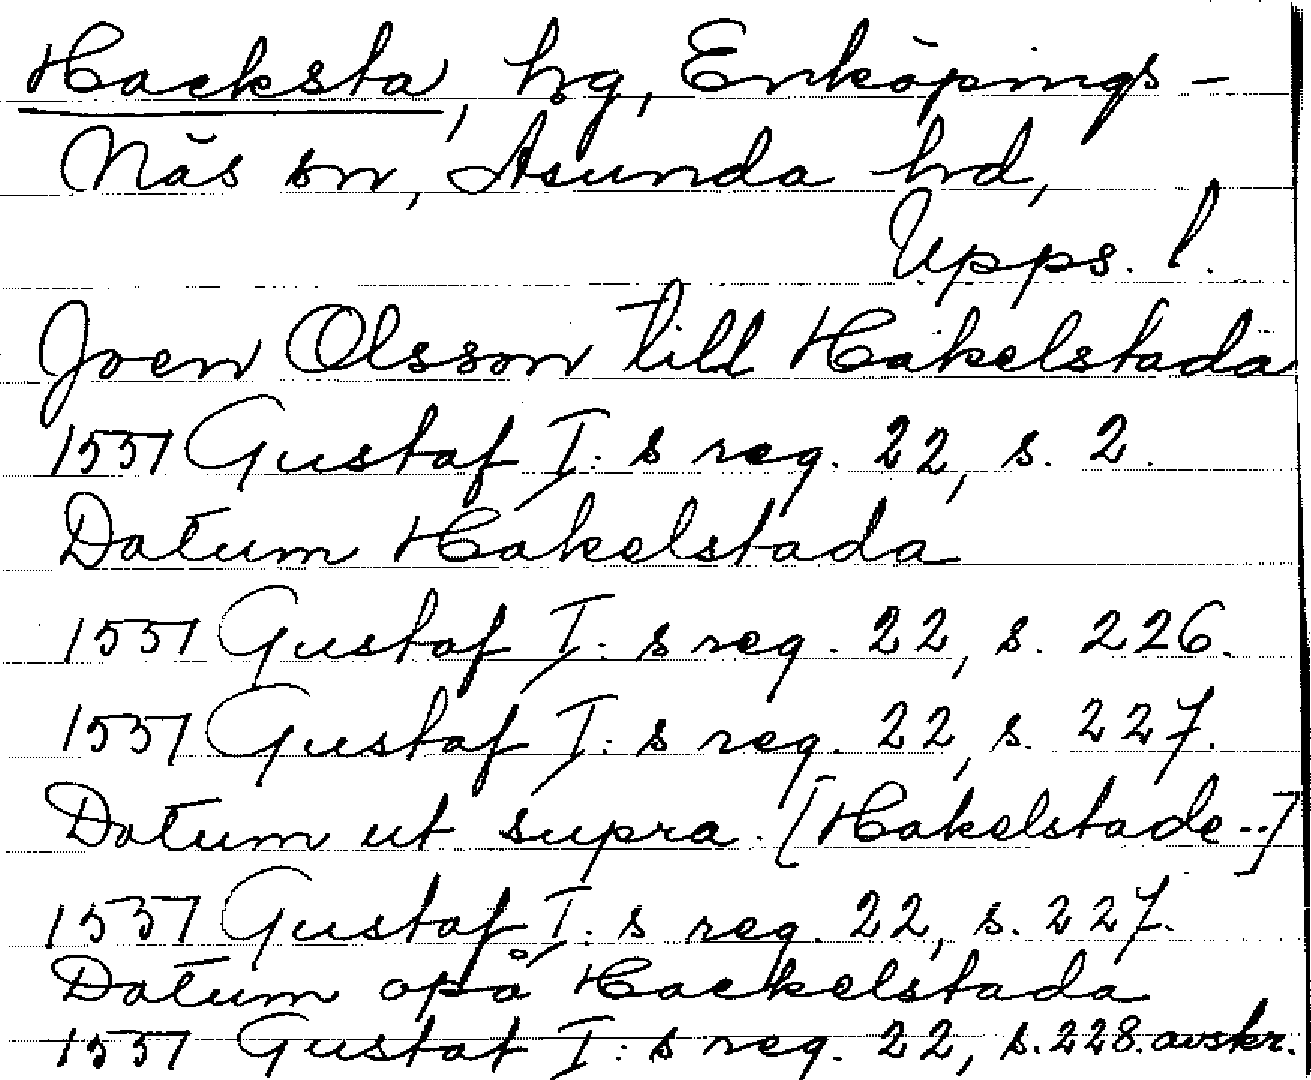 Hacksta, hg, Enköpings-
Näs sn, Åsunda hd,
Upps. l.
Joen Olsson till Hakelstada
1551 Gustaf I: s reg. 22, s. 2.
Datum Hakelstada
1551 Gustaf I: s reg. 22, s. 226.
1551 Gustaf I: s reg. 22, s. 227.
Datum ut supra. [Hakelstade..]
1551 Gustaf I: s reg. 22, s. 227.
Datum opå Hackelstada
1551 Gustaf I: s reg. 22, s. 228. avskr.